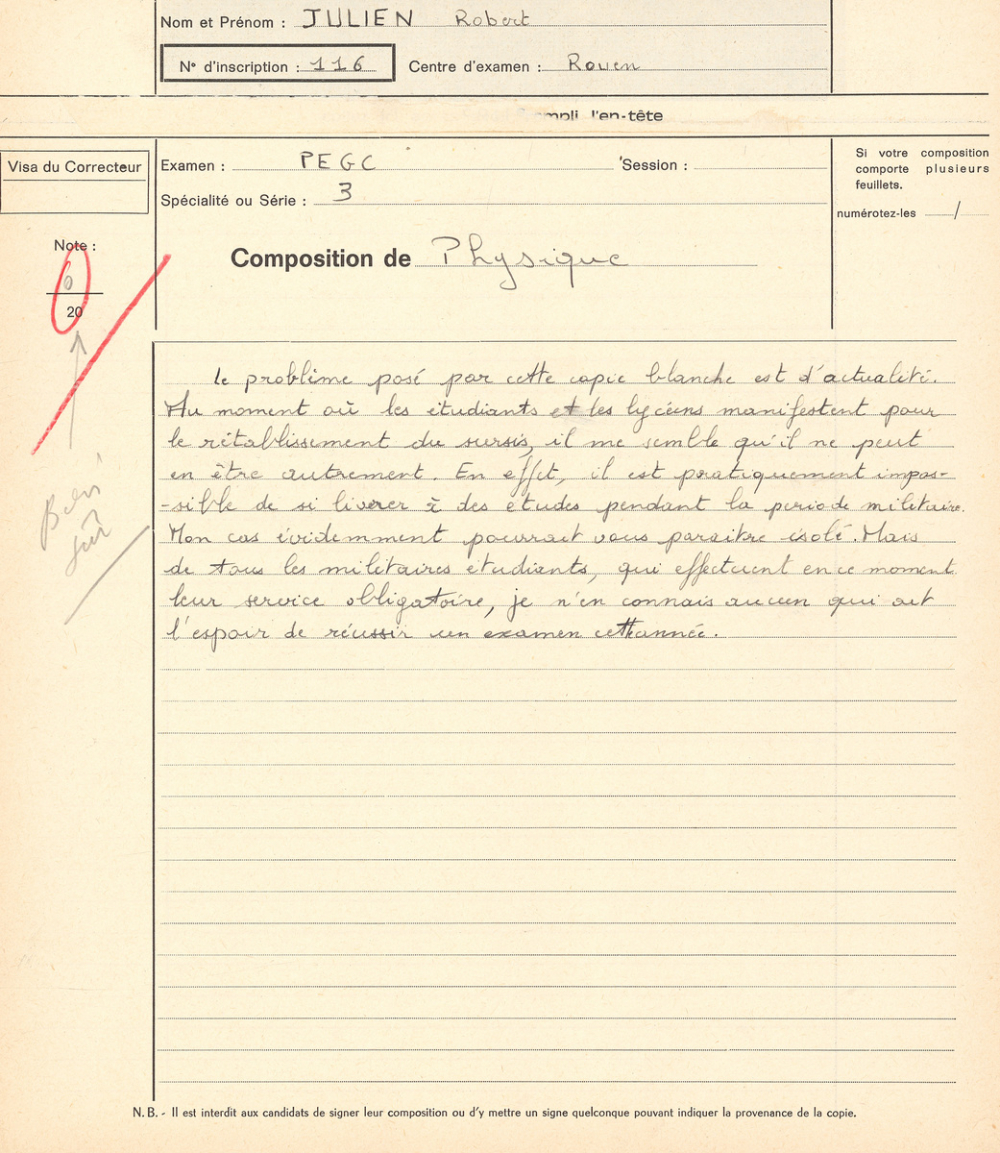 Nom et Prénom : JULIEN Robert
N° d'inscription : 116
Centre d'examen : Rouen
l'en-tête
Visa du Correcteur
Examen : PEGC
Session :
Spécialité ou Série : 3
Si votre composition
comporte plusieurs
feuillets.
numérotez-les /
Note :
0
20
Composition de Physique
Bien
sûr
le problème posé par cette copie blanche est d'actualité.
Au moment où les étudiants et les lycéens manifestent pour
le rétablissement du sursis, il me semble qu'il ne peut
en être autrement. En effet, il est pratiquement impos-
-sible de si livrer à des études pendant la période militaire.
Mon cas évidemment pourrait vous paraitre isolé. Mais
de tous les militaires étudiants, qui effectuent en ce moment
leur service obligatoire, je n'en connais aucun qui ait
l'espoir de réussir un examen cette année.
N.B. - Il est interdit aux candidats de signer leur composition ou d'y mettre un signe quelconque pouvant indiquer la provenance de la copie.